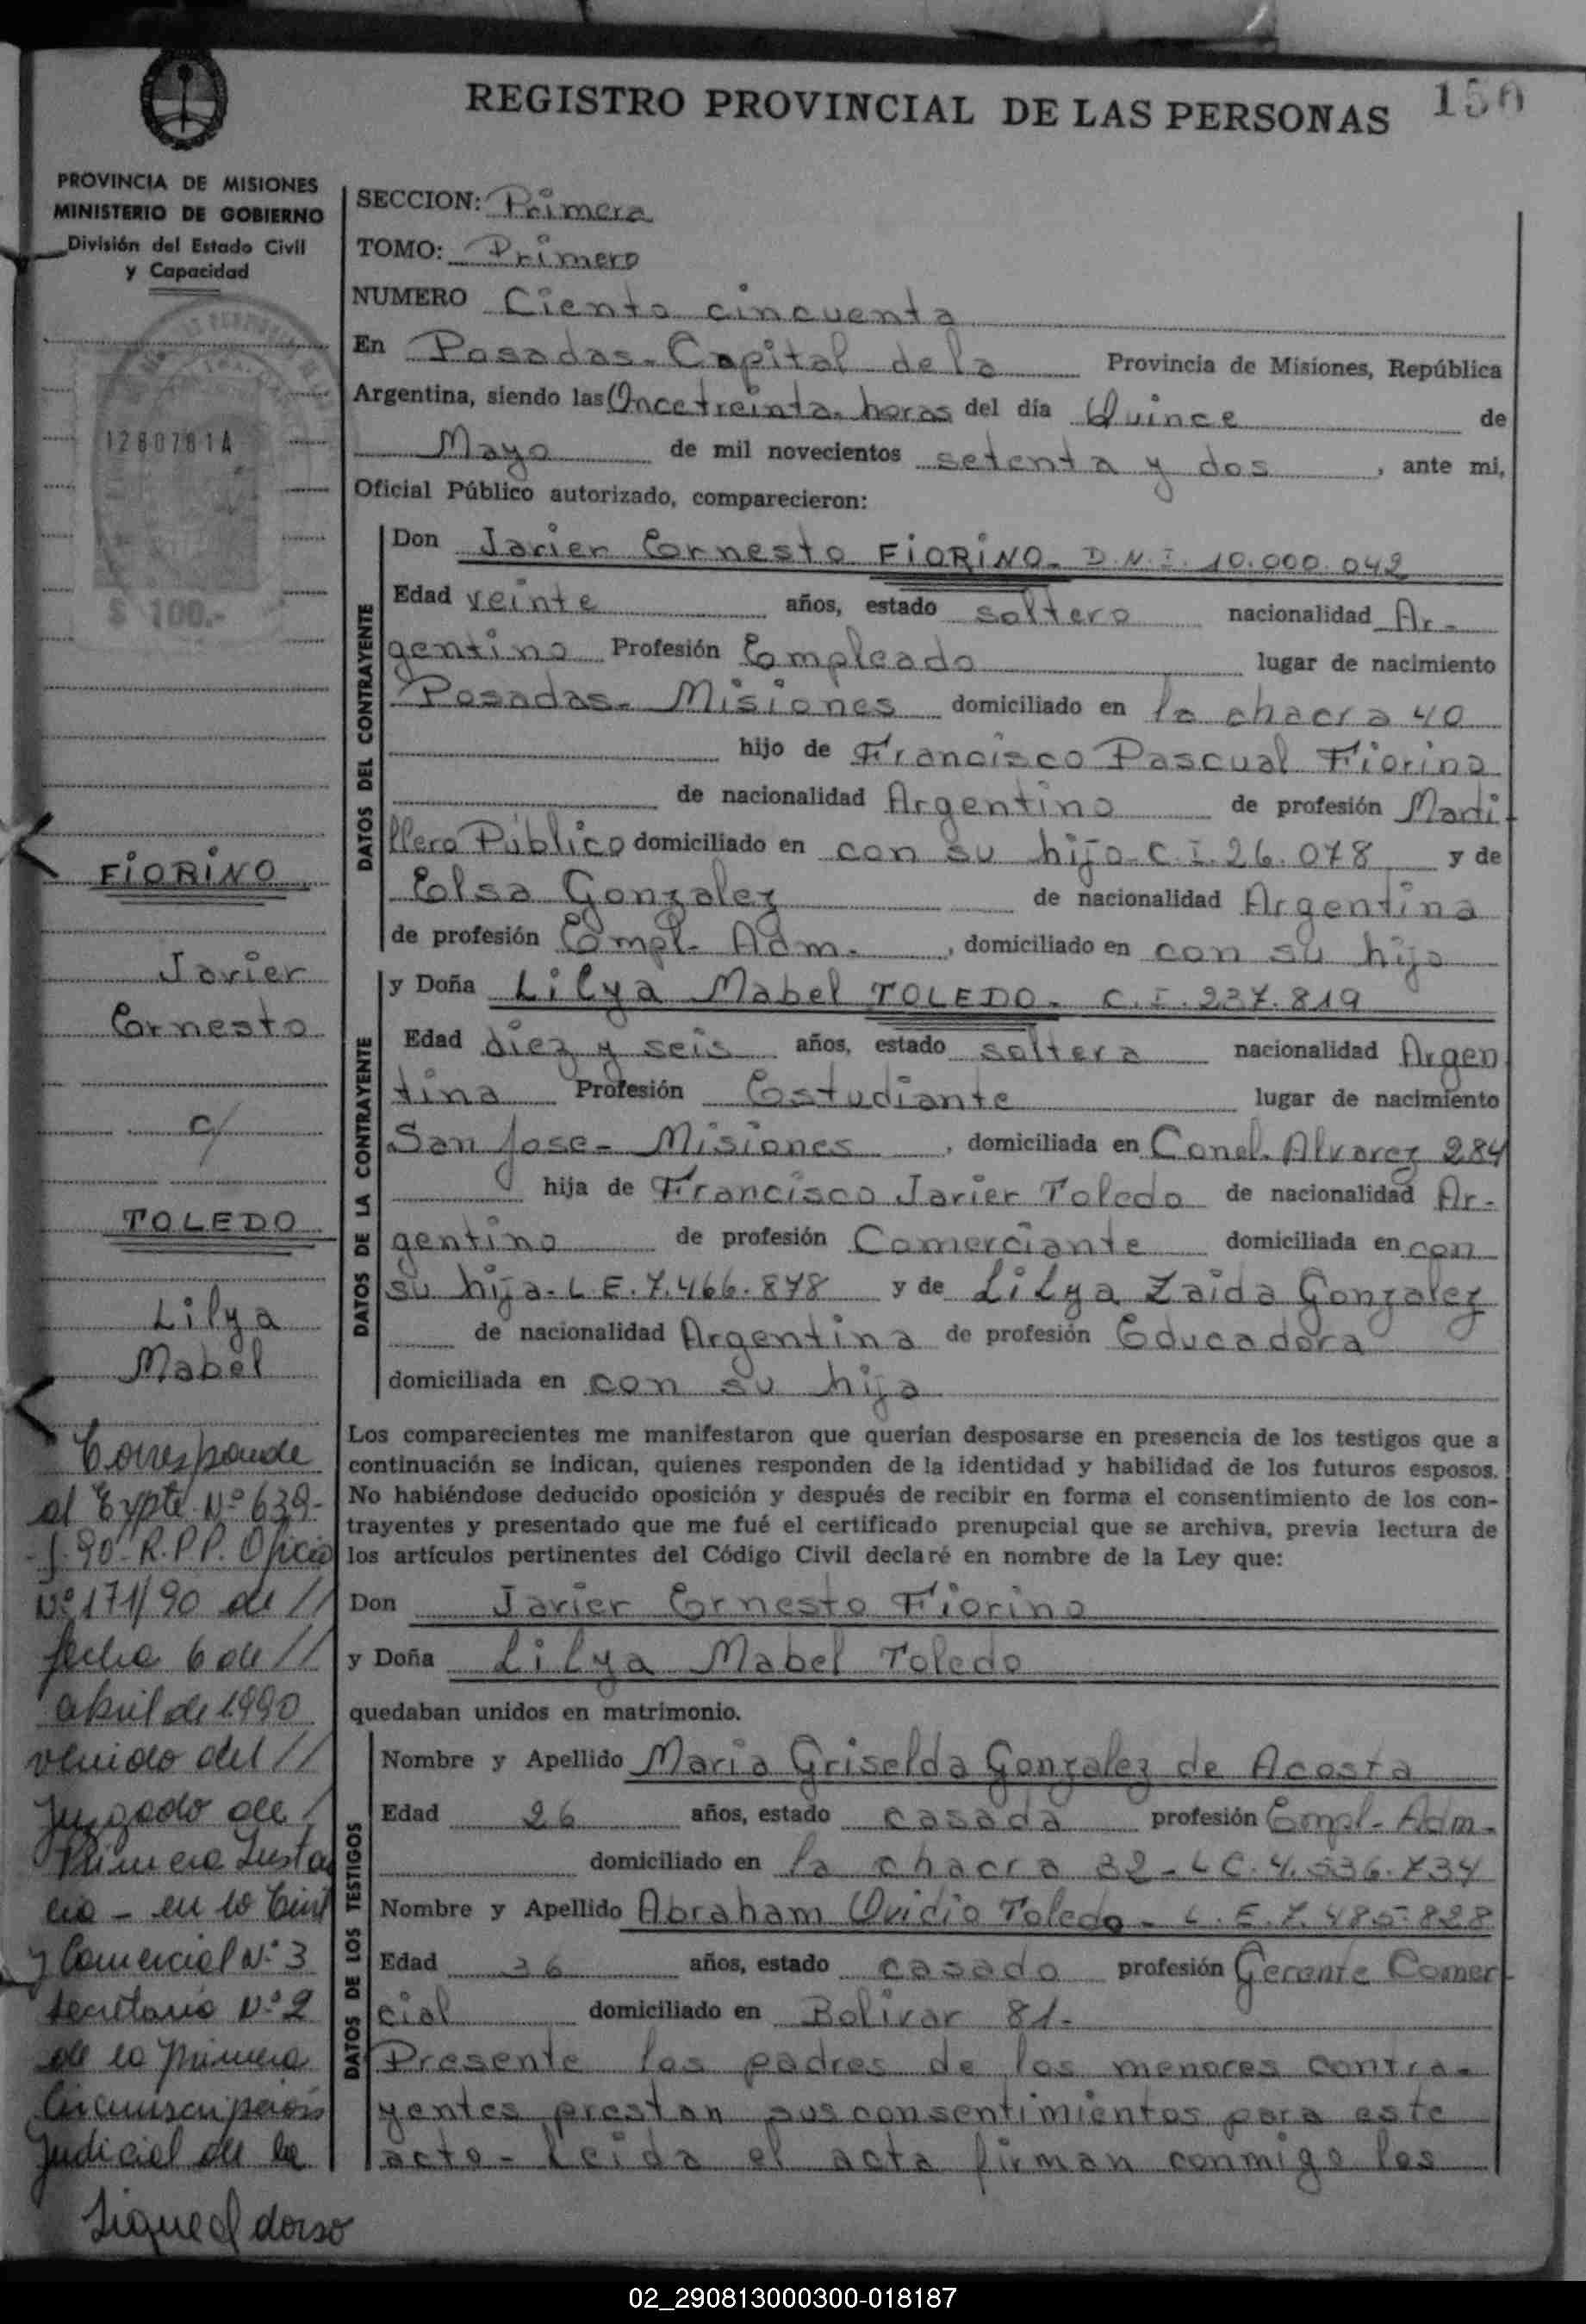 REGISTRO PROVINCIAL DE LAS PERSONAS
150
PROVINCIA DE MISIONES
MINISTERIO DE GOBIERNO
División del Estado Civil
y Capacidad
1280781A
$ 100.-
FiORiNO
Javier
Ernesto
c/
TOLEDO
Lilya
Mabel
Corresponde
al Expte Nº 639-
f. 90- R.P.P. Oficio
Nº 171/90 de //
fecha 6 de //
abril de 1990
venido del //
Juzgado de /
Primera Insta
cia - en lo Civil
y Comercial Nº 3
secretaria Nº 2
de la primera
Circunscripción
Judicial de la
Sigue al dorso
SECCION: Primera
TOMO: Primero
NUMERO Ciento cincuenta
En Posadas- Capital de la Provincia de Misiones, República
Argentina, siendo las Oncetreinta horas del día Quince de
Mayo de mil novecientos setenta y dos, ante mi,
Oficial Público autorizado, comparecieron:
DATOS DEL CONTRAYENTE
Don Javier Ernesto FiORiNO- D.N.I. 10.000.042
Edad veinte años, estado soltero nacionalidad Ar-
gentino Profesión Empleado lugar de nacimiento
Posadas- Misiones domiciliado en la chacra 40
hijo de Francisco Pascual Fiorino
de nacionalidad Argentino de profesión Marti
llero Público domiciliado en con su hijo- C.I. 26.078 y de
Elsa Gonzalez de nacionalidad Argentina
de profesión Empl- Adm-, domiciliado en con su hijo
DATOS DE LA CONTRAYENTE
y Doña Lilya Mabel TOLEDO- C.I. 237.819
Edad diez y seis años, estado soltera nacionalidad Argen
tina Profesión Estudiante lugar de nacimiento
San Jose- Misiones, domiciliada en Conel. Alvarez 284
hija de Francisco Javier Toledo de nacionalidad Ar-
gentino de profesión Comerciante domiciliada en con
su hija- L.E. 7.466.878 y de Lilya Zaida Gonzalez
de nacionalidad Argentina de profesión Educadora
domiciliada en con su hija
Los comparecientes me manifestaron que querían desposarse en presencia de los testigos que a
continuación se indican, quienes responden de la identidad y habilidad de los futuros esposos.
No habiéndose deducido oposición y después de recibir en forma el consentimiento de los con-
trayentes y presentado que me fué el certificado prenupcial que se archiva, previa lectura de
los artículos pertinentes del Código Civil declaré en nombre de la Ley que:
Don Javier Ernesto Fiorino
y Doña Lilya Mabel Toledo
quedaban unidos en matrimonio.
DATOS DE LOS TESTIGOS
Nombre y Apellido Maria Griselda Gonzalez de Acosta
Edad 26 años, estado casada profesión Empl- Adm-
domiciliado en la chacra 32- L.C. 4.536.734
Nombre y Apellido Abraham Ovidio Toledo- L.E. 7.485.828
Edad 36 años, estado casado profesión Gerente Comer
cial domiciliado en Bolivar 81-
Presente los padres de los menores contra-
yentes prestan sus consentimientos para este
acto- Leida el acta firman conmigo los
02_290813000300-018187